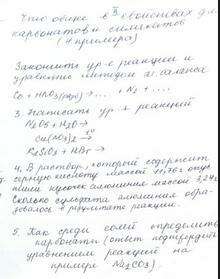 Что общее в свойствах
карбонатов и силикатов
(4 примера)
Закончить ур-е реакции и
уравнение методом эл. баланса
Ca + HNO3(разб) → ... + N2 + ...
3. Написать ур-я реакций
N2O5 + H2O →
Cu(NO3)2 →
K2SiO3 + HBr →
4. В раствор, который содержит
серную кислоту массой
пили кусочек алюминия массой
Сколько сульфата алюминия обра-
зовалось в результате реакции.
5. Как среди солей определить
карбонаты (ответ подтвердить
уравнением реакций на
примере Na2CO3)